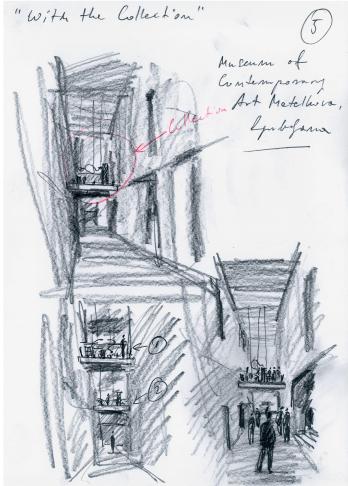 "With the Collection"
5
Museum of
Contemporary
Art Metelkova,
Ljubljana
Collection
1
2